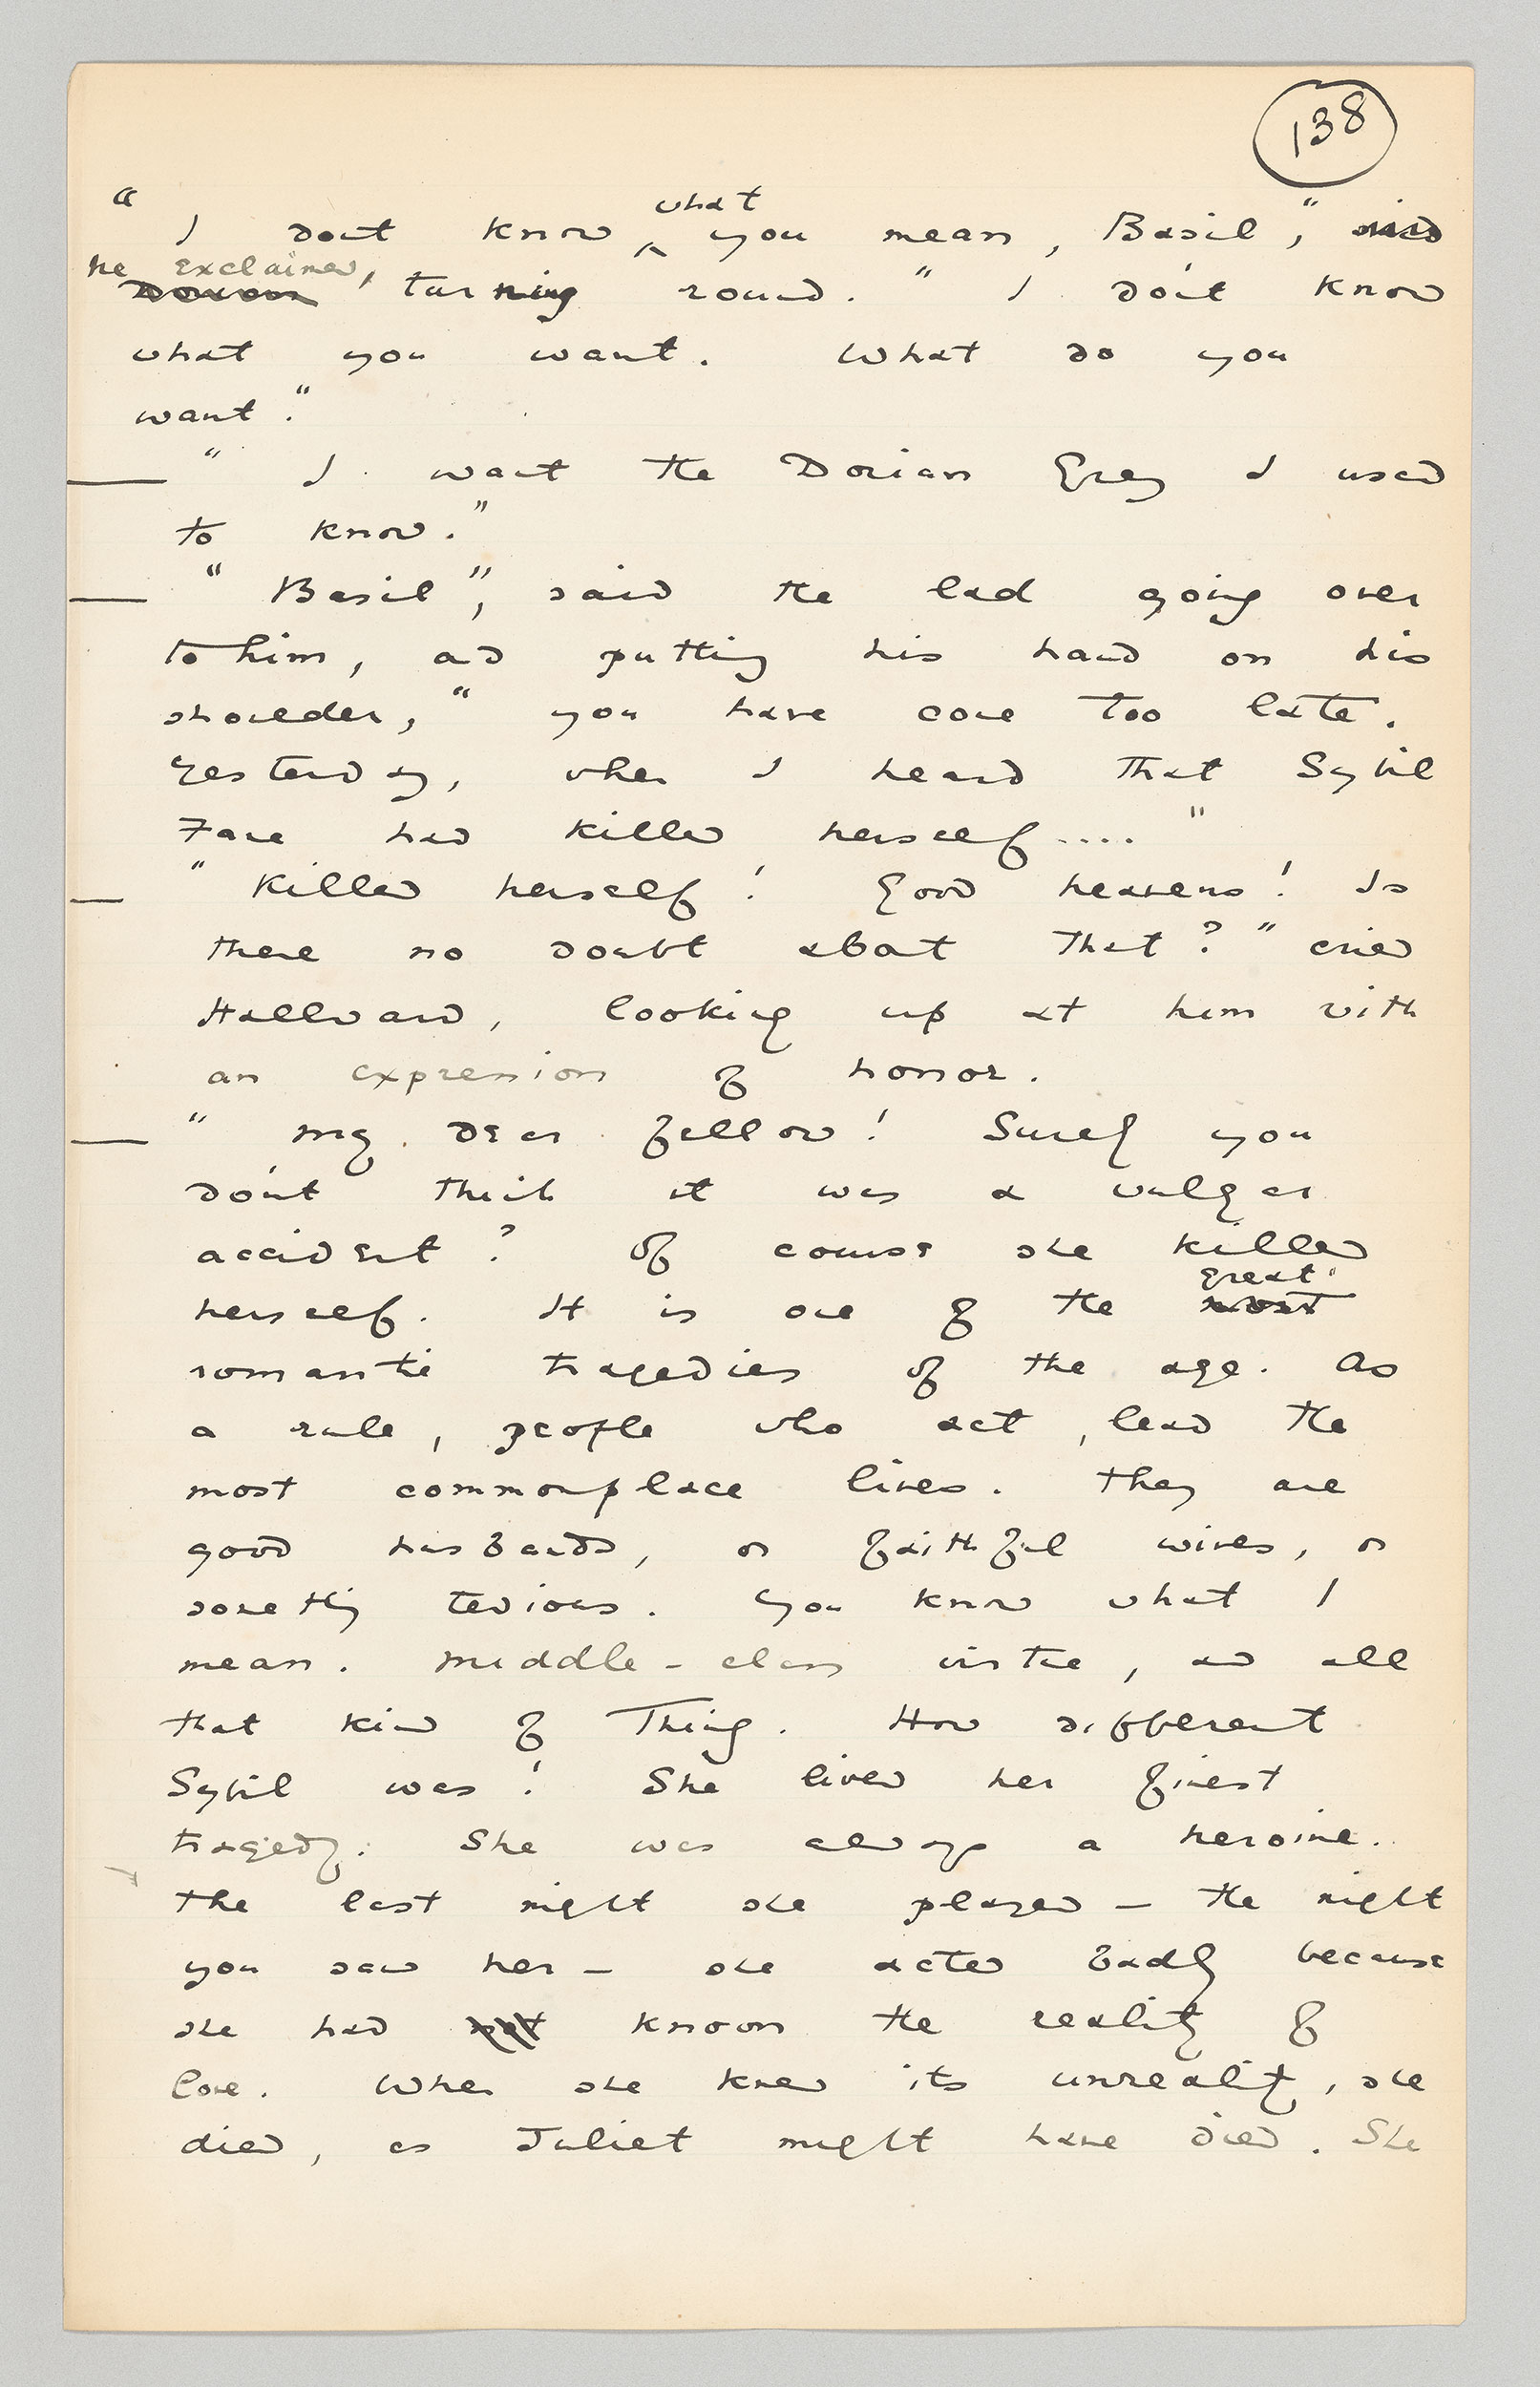 138
" I dont know what you mean, Basil," said
he exclaimed,
Dorian turning round. " I do'nt know
what you want. What do you
want."
" I want the Dorian Gray I used
to know."
" Basil", said the lad going over
to him, and putting his hand on his
shoulder, " you have come too late.
Yesterday, when I heard that Sybil
Vane had killed herself.... "
" Killed herself! Good heavens! Is
there no doubt about that? " cried
Hallward, looking up at him with
an expression of horror.
" My dear fellow! Surely you
do'nt think it was a vulgar
accident? Of course she killed
great
herself. It is one of the most
romantic tragedies of the age. As
a rule, people who act, lead the
most commonplace lives. They are
good husbands, or faithful wives, or
something tedious. You know what I
mean. Middle-class virtue, and all
that kind of Thing. How different
Sybil was! She lived her finest
tragedy. She was always a heroine.
The last night she played — the night
you saw her — she acted badly because
she had not known the reality of
love. When she knew its unreality, she
died, as Juliet might have died. She